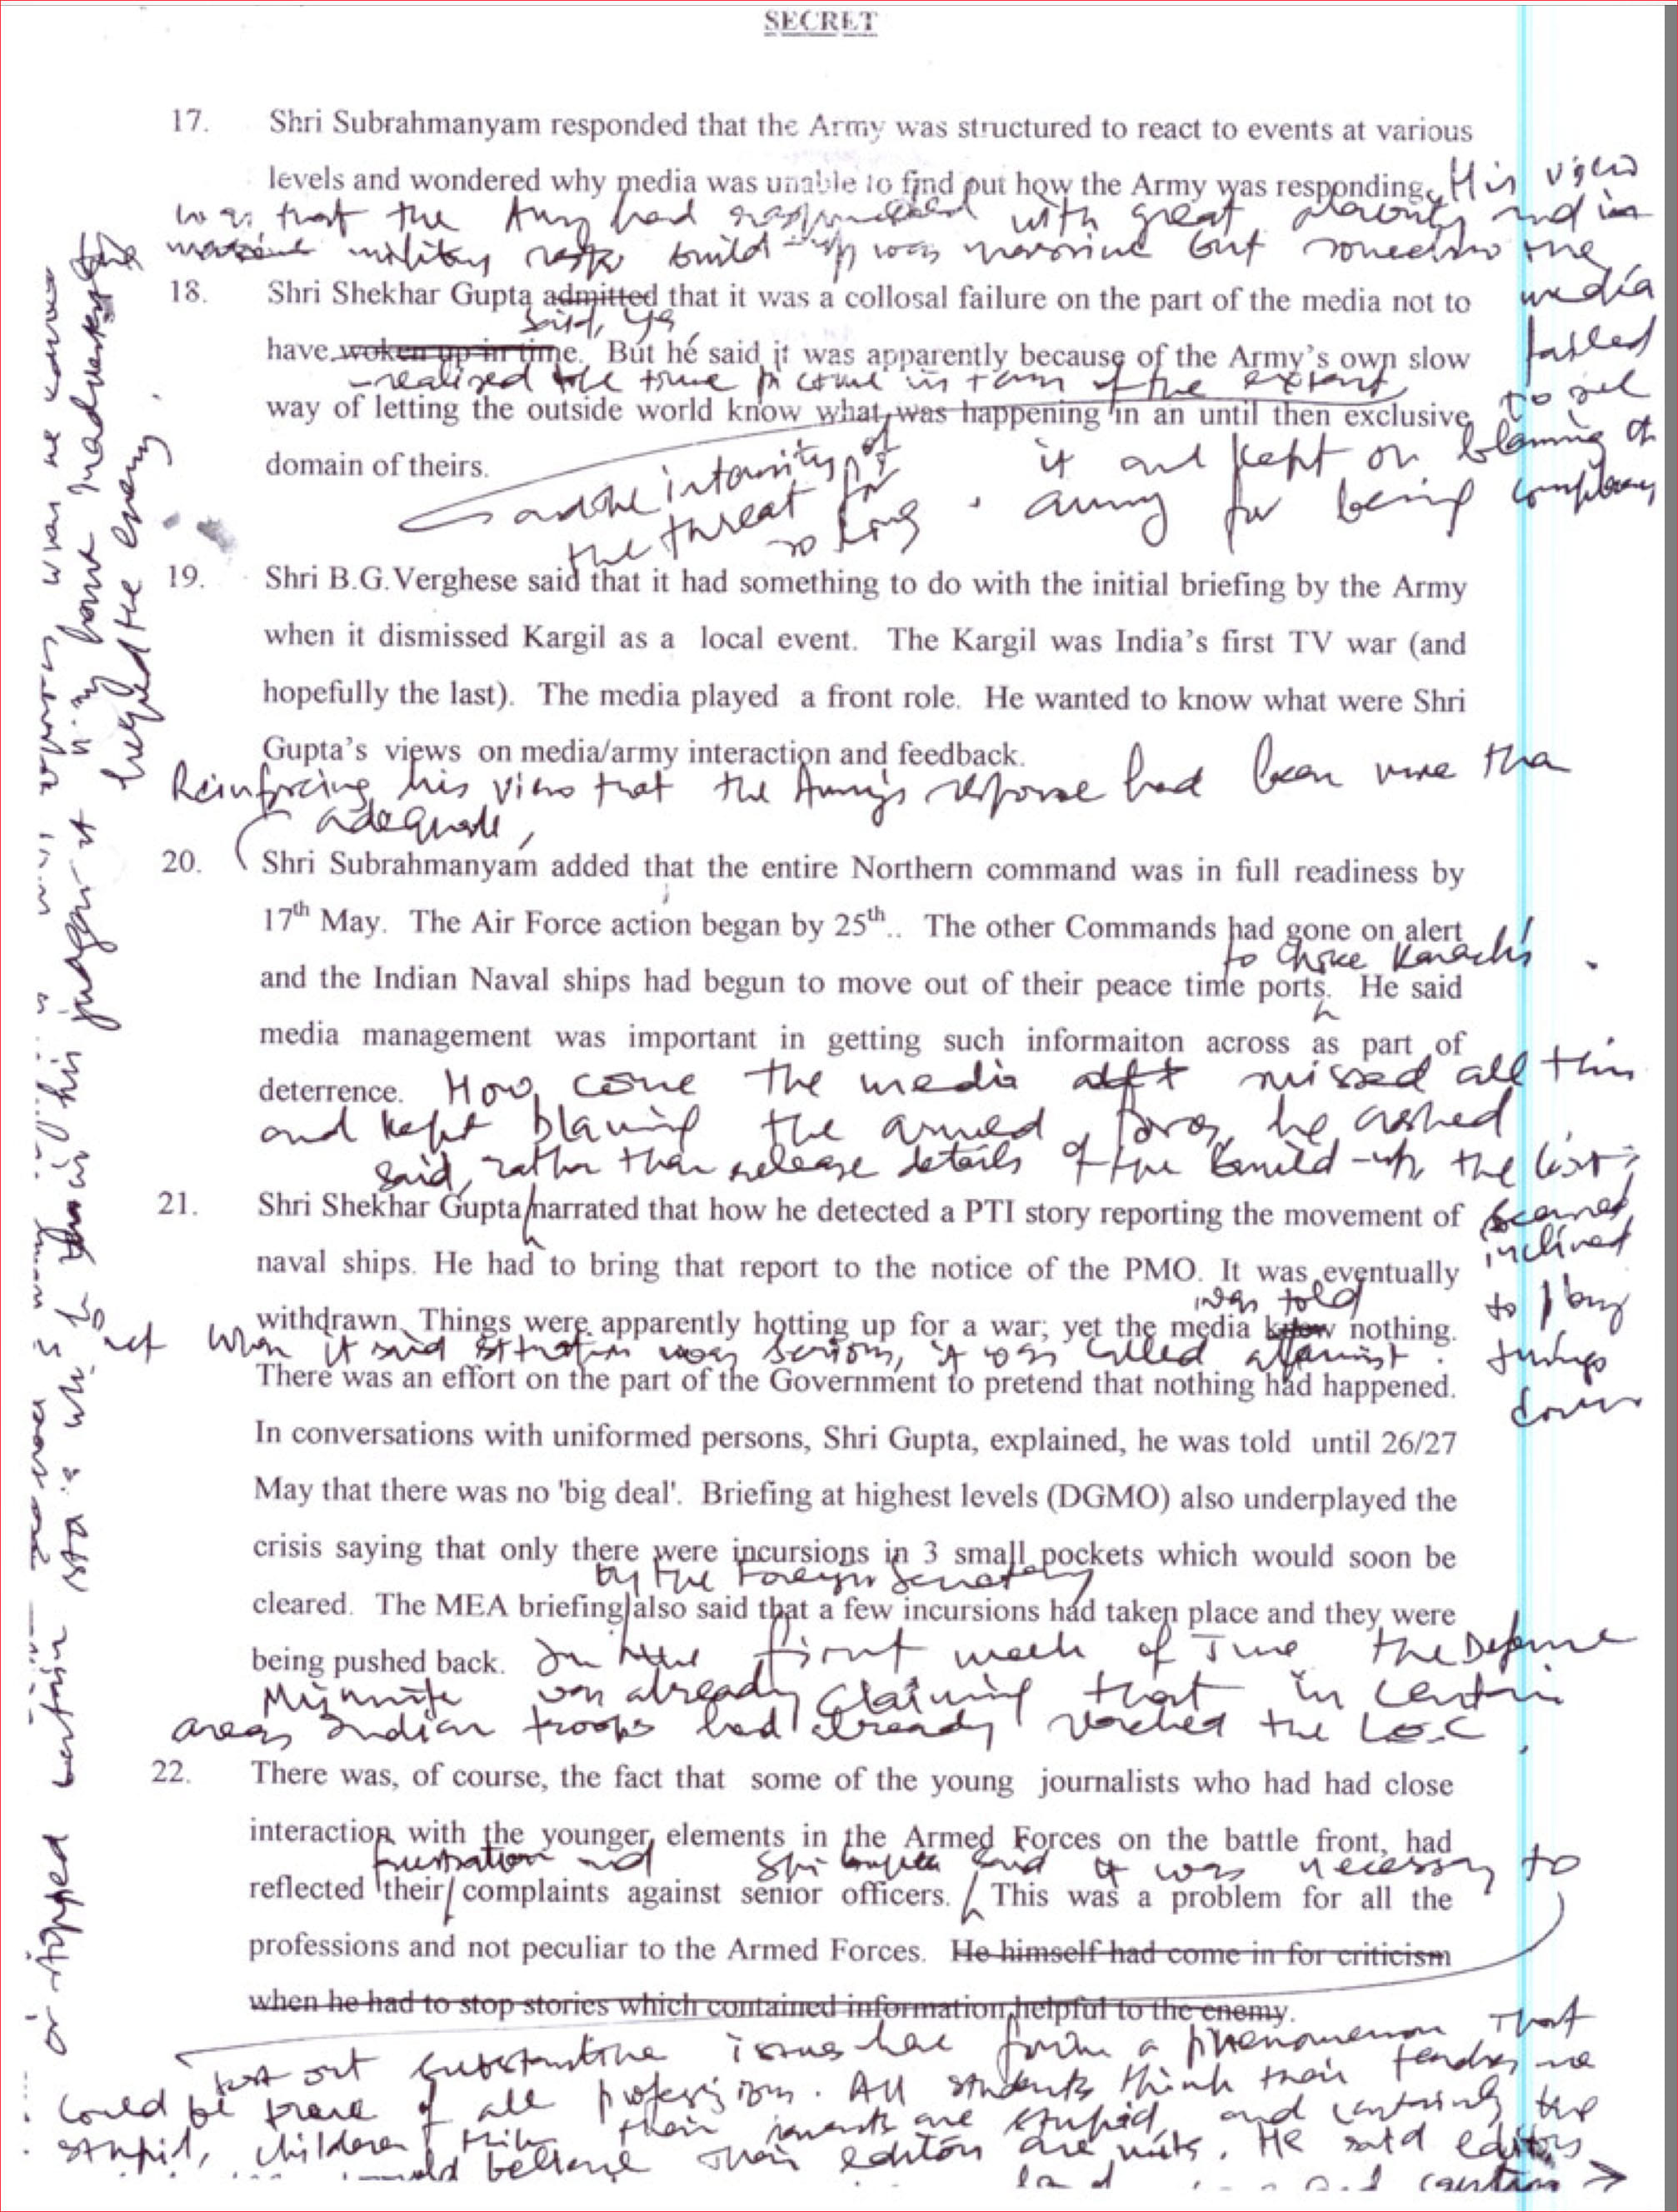 SECRET
17. Shri Subrahmanyam responded that the Army was structured to react to events at various
levels and wondered why media was unable to find out how the Army was responding. His view
was that the Army had responded with great alacrity and in
military build-up was massive but somehow the
media
failed
to see
it and kept on blaming the
army for being complacent
18. Shri Shekhar Gupta admitted that it was a collosal failure on the part of the media not to
said, yes,
have woken up in time. But he said it was apparently because of the Army's own slow
realised the time of the extent
way of letting the outside world know what was happening in an until then exclusive
domain of theirs.
and the intensity of
the threat for
so long
19. Shri B.G.Verghese said that it had something to do with the initial briefing by the Army
when it dismissed Kargil as a local event. The Kargil was India's first TV war (and
hopefully the last). The media played a front role. He wanted to know what were Shri
Gupta's views on media/army interaction and feedback.
Reinforcing his view that the Army's response had been more than
adequate,
20. Shri Subrahmanyam added that the entire Northern command was in full readiness by
17th May. The Air Force action began by 25th.. The other Commands had gone on alert
to choke Karachi
and the Indian Naval ships had begun to move out of their peace time ports. He said
media management was important in getting such informaiton across as part of
deterrence. How come the media missed all this
and kept blaming the armed forces, he asked
said, rather than release details of the build-up, the Govt
seemed
inclined
to play
things
down
21. Shri Shekhar Gupta narrated that how he detected a PTI story reporting the movement of
naval ships. He had to bring that report to the notice of the PMO. It was eventually
was told
withdrawn. Things were apparently hotting up for a war; yet the media know nothing.
When it said situation was serious, it was called alarmist.
There was an effort on the part of the Government to pretend that nothing had happened.
In conversations with uniformed persons, Shri Gupta, explained, he was told until 26/27
May that there was no 'big deal'. Briefing at highest levels (DGMO) also underplayed the
crisis saying that only there were incursions in 3 small pockets which would soon be
by the Foreign Secretary
cleared. The MEA briefing also said that a few incursions had taken place and they were
being pushed back. In the first week of June the Defence
Minister was already claiming that in certain
areas Indian troops had already reached the LoC
22. There was, of course, the fact that some of the young journalists who had had close
interaction with the younger elements in the Armed Forces on the battle front, had
frustration and Shri Gupta said it was necessary to
reflected their complaints against senior officers. This was a problem for all the
professions and not peculiar to the Armed Forces. He himself had come in for criticism
when he had to stop stories which contained information helpful to the enemy.
sort out substantive issues here from a phenomenon that
could be true of all professions. All students think their teachers are
stupid, children think their parents are stupid, and certainly the
believe their editors are nuts. He said editors
caution
or stopped certain
in his judgement it may have inadvertently
helped the enemy.